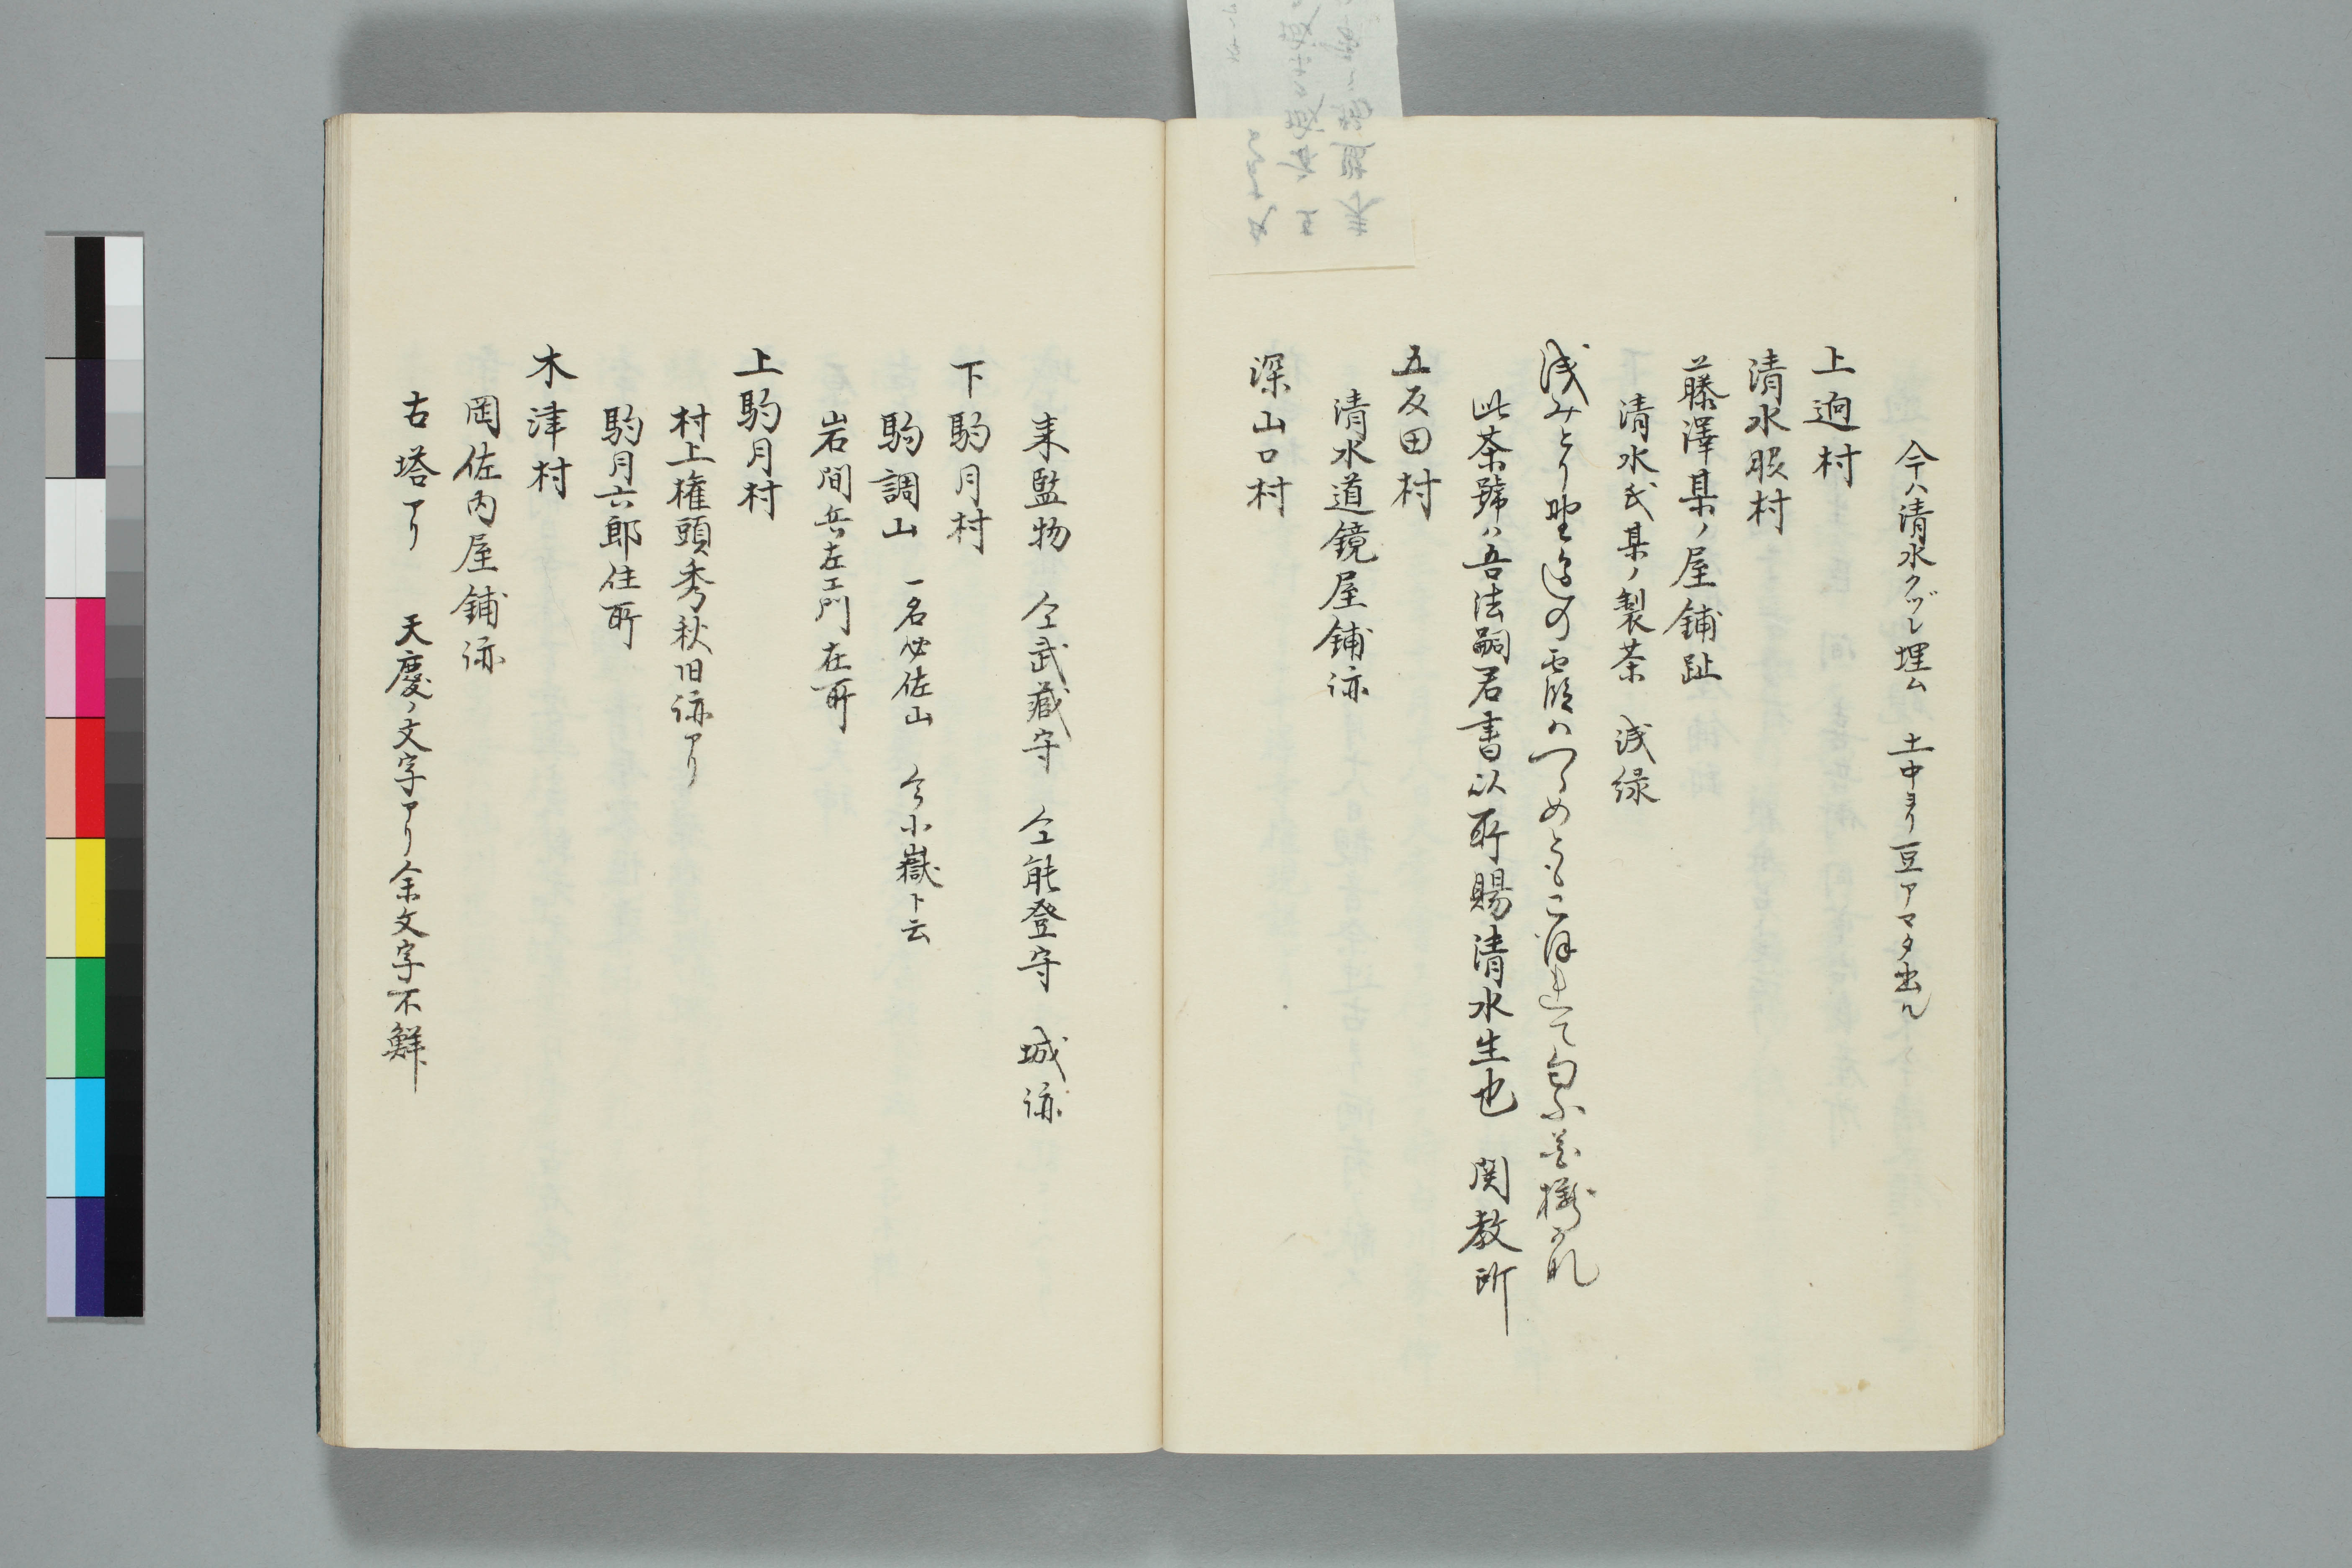 今ハ清水クヅレ埋ム 土中ヨリ豆アマタ出ル
上迥村
清水脵村
藤澤某ノ屋鋪趾
清水氏某ノ製茶 浅緑
浅みとり野辺の霞ハつゝめともこほれて匂ふ花櫻かな
此茶號ハ吾法嗣君書以所賜清水生也 関教所
五反田村
清水道鏡屋鋪跡
深山口村
耒監物 仝武藏守 仝能登守 城跡
下駒月村
駒調山 一名必佐山 今小嶽ト云
岩間兵左エ門在所
上駒月村
村上権頭秀秋旧跡アリ
駒月六郎住所
木津村
岡佐内屋鋪跡
古塔アリ 天慶ノ文字アリ余文字不鮮